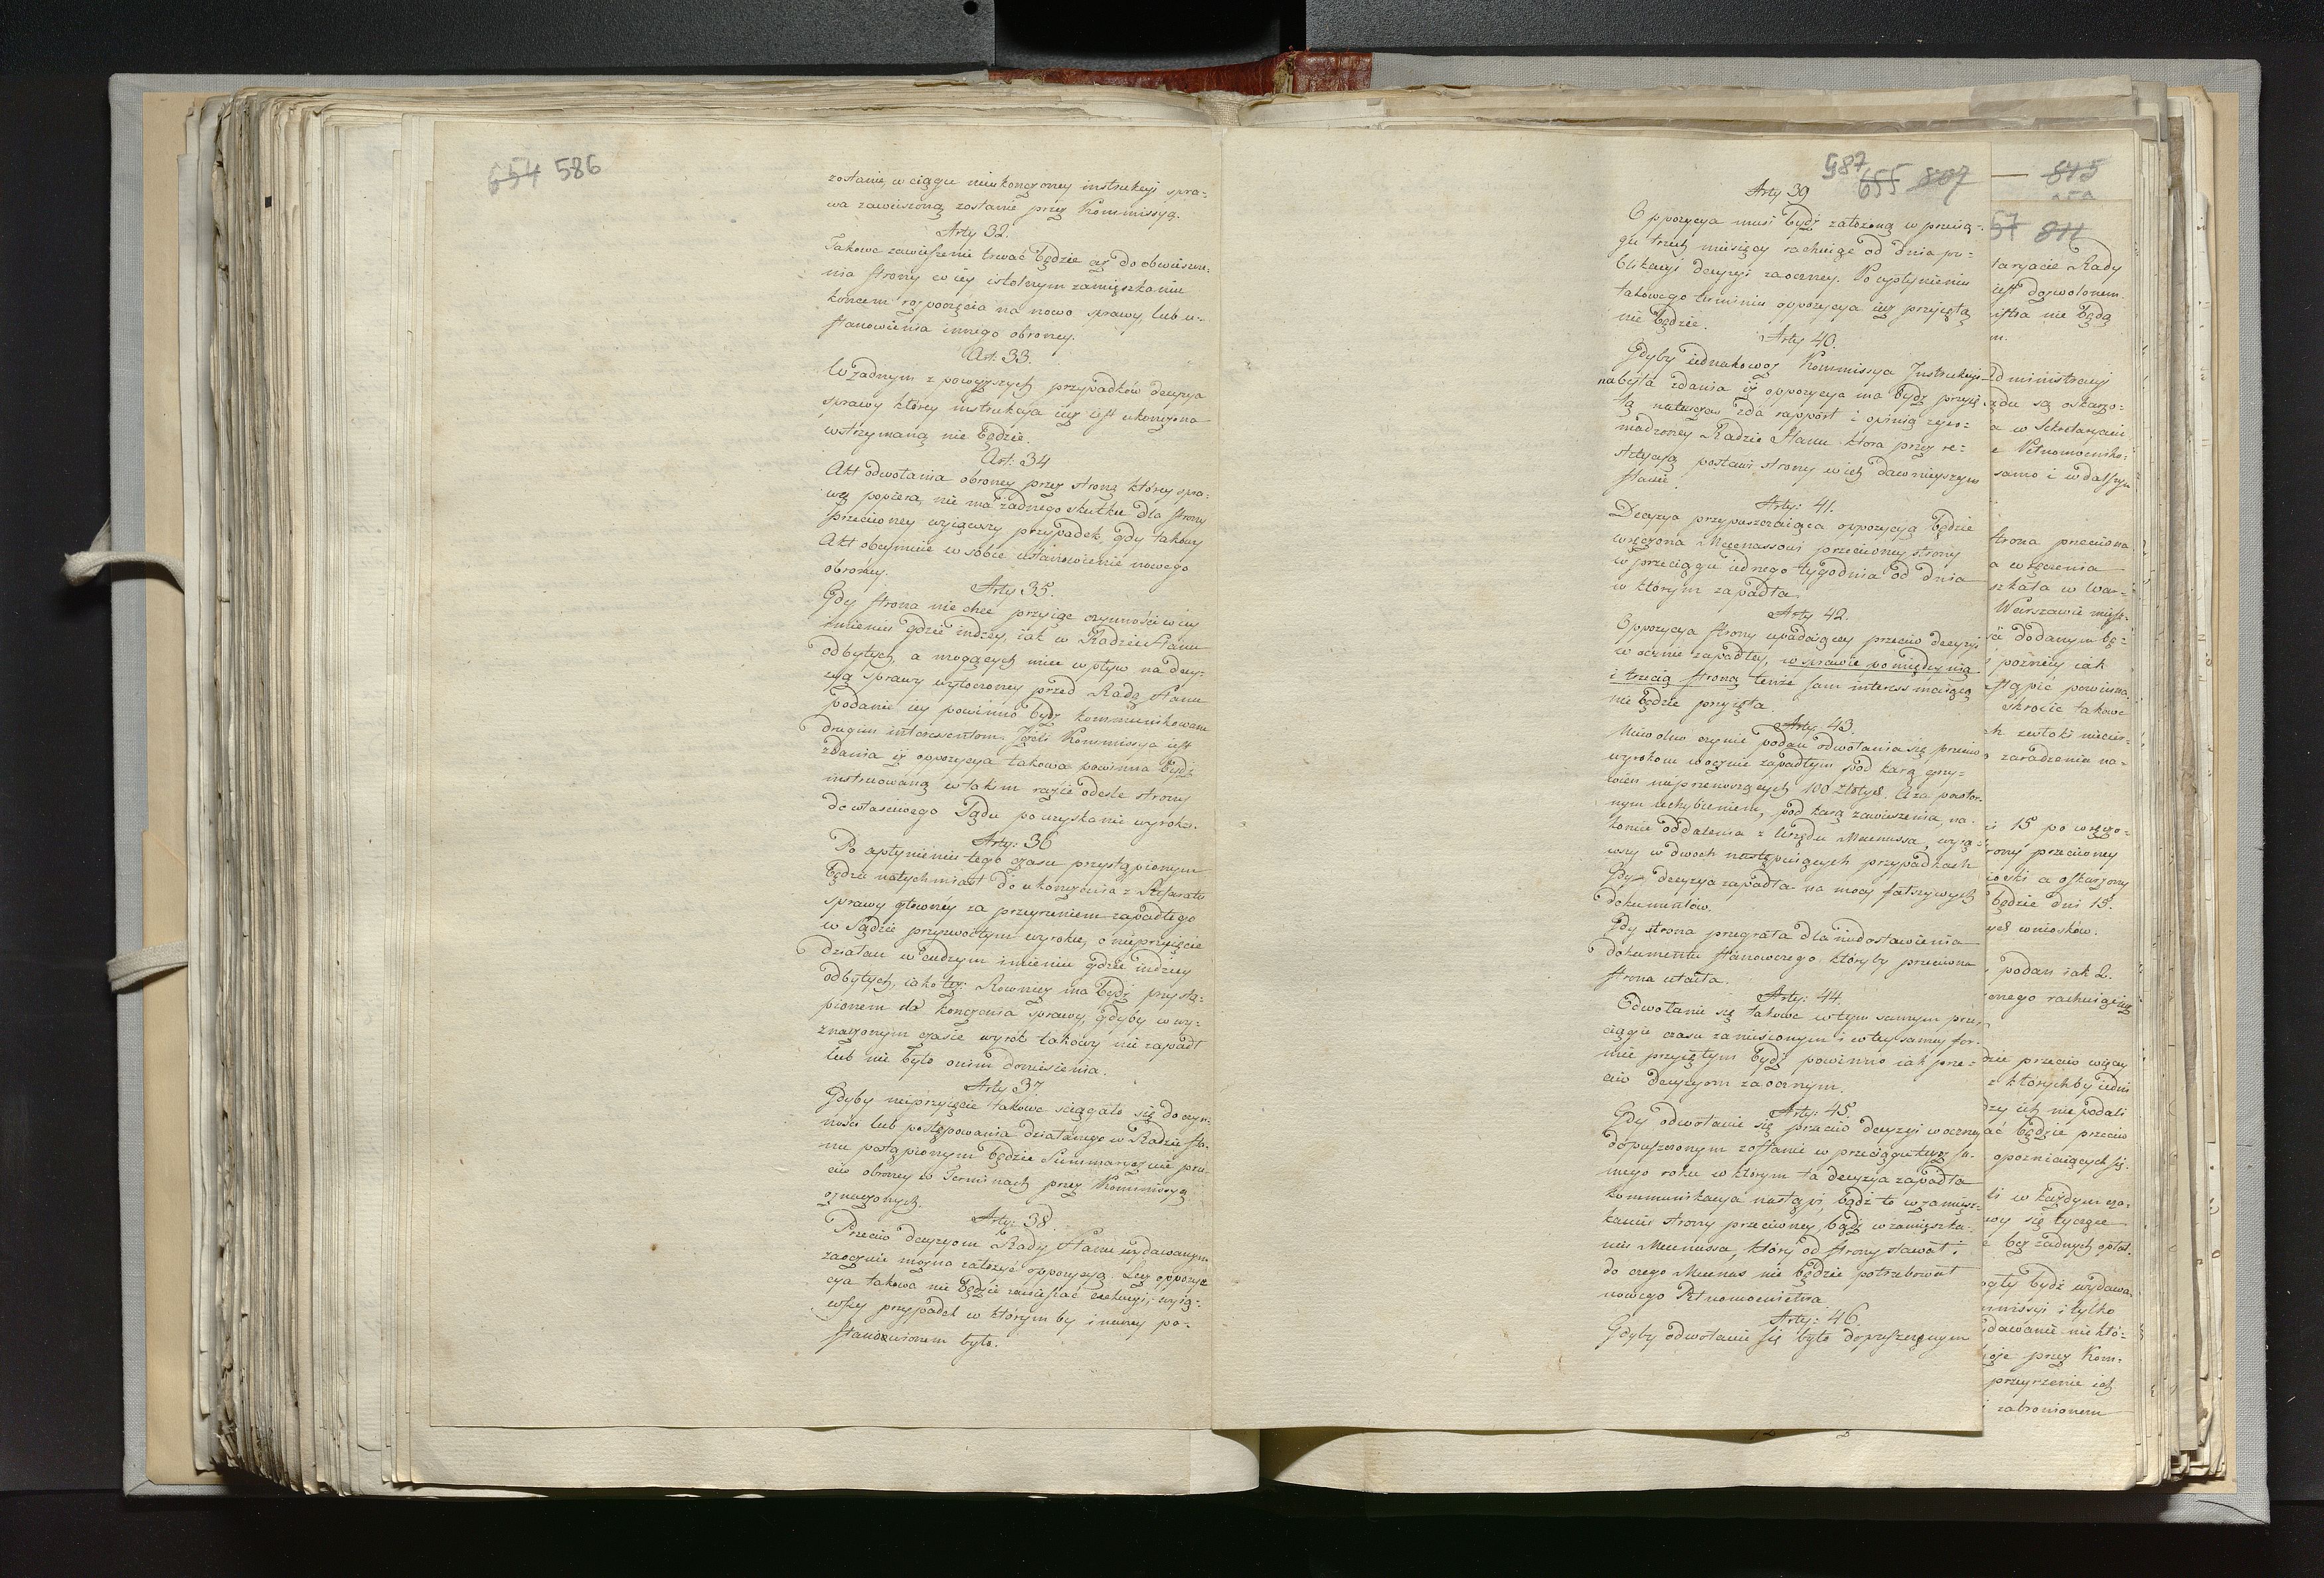 654 586
zostanie, w ciągu nieukonczoney instrukcyi spra-
wa zawieszoną zostanie przez Kommissyą.
Arty 32.
Takowe zawieszenie trwać będzie aż do obwieszcze-
nia strony w iey istotnym zamięszkaniu
koncem rozpoczęcia na nowo sprawy, lub u-
stanowienia innego obrońcy.
Art: 33.
W żadnym z powyższych przypadków decyzya
sprawy którey instrukcyia iuż iest ukonczona
wstrzymaną nie będzie.
Art: 34
Akt odwołania obrońcy przez stronę którey spra-
wę popiera, nie ma żadnego skutku dla strony
przeciwney wyiąwszy przypadek, gdy takowy
Akt obeymuie w sobie ustanowienie nowego
obrońcy.
Arty 35.
Gdy strona nie chce przyiąć czynności w iey
imieniu gdzie indzey, iak w Radzie Stanu
odbytych, a mogących mieć wpływ na decy-
zyą sprawy wytoczoney przed Radą Stanu
podanie iey powinno bydź kommunikowane
drugim interessentom. Jeżeli Kommissya iest
zdania iż oppozycya takowa powinna bydź
instruowaną w takim razie odeśle strony
do właściwego Sądu po uzyskanie wyroku.
Arty: 36
Po upłynieniu tego czasu przystąpionym
będzie natychmiast do ukonczenia z Referatu
sprawy głowney za przeyrzeniem zapadłego
w Sądzie przyzwoitym wyroku, o nieprzyięcie
działań w cudzym imieniu gdzie indziey
odbytych, iako też: Rownież ma bydź przystą-
pionem do konczenia sprawy, gdyby w wy-
znaczonym czasie wyrok takowy nie zapadł
lub nie było o nim doniesienia.
Arty 37
Gdyby nieprzyięcie takowe sciągało się do czyn-
ności lub postępowania działanego w Radzie Sta-
nu postąpionym będzie Summarycznie prze-
ciw obrońcy w Terminach przez Kommissyą
oznaczonych.
Arty: 38.
Przeciw decyzyom Rady Stanu wydawanym
zaocznie można założyć oppozycyą. Lecz oppozy-
cya takowa nie będzie zawieszać exekucyi, wyią-
wszy przypadek w którym by inaczey po-
stanowionem było.
587
655 807
Arty 39
Oppozycya musi bydź założoną w przecią-
gu trzech miesięcy rachuiąc od dnia pu-
blikacyi decyzyi zaoczney. Po upłynieniu
takowego terminu oppozycya iuż przyiętą
nie będzie.
Arty 40.
Gdyby iednakowoż Kommissya Instrukcyi
nabyła zdania iż oppozycya ma bydź przyię-
tą natenczas zda rapport i opinią zgro-
madzoney Radzie Stanu która przez re-
stytucyą postawi strony w ich dawnieyszym
stanie.
Arty: 41.
Decyzya przypuszczaiąca oppozycyą będzie
wręczona Mecenassowi przeciwney strony
w przeciągu iednego tygodnia od dnia
w którym zapadła.
Arty 42.
Oppozycya strony upadaiącey przeciw decyzyi
w ocznie zapadłey, w sprawie pomiędzy nią
i trzecią stroną tenże sam interess maiącą
nie będzie przyięta.
Arty 43.
Niewolno czynić podań odwołania się przeciw
wyrokom w ocznie zapadłym pod karą grzy-
wien nieprzenoszących 100 złotych. A za powtor-
nym uchybieniem, pod karą zawieszenia, na-
koniec oddalenia z Urzędu Mecenassa, wyią-
wszy w dwoch następuiących przypadkach
Gdy decyzya zapadła na mocy fałszywych
dokumentów.
Gdy strona przegrała dla niedostawienia
dokumentu stanowczego któryby przeciwna
strona utaiła.
Arty: 44.
Odwołanie się takowe w tym samym prze-
ciągu czasu zaniesionym i w tey samey for-
mie przyiętym bydź powinno iak prze-
ciw decyzyom zaocznym.
Arty: 45.
Gdy odwołanie się przeciw decyzyi w oczney
dopuszczonym zostanie w przeciągu tegoż sa-
mego roku w którym ta decyzya zapadła
kommunikacya nastąpi, bądź to w zamiesz-
kaniu strony przeciwney, bądź w zamięszka-
niu Mecenassa, który od strony stawał i
do czego Mecenas nie będzie potrzebował
nowego Pełnomocnictwa
Arty: 46.
Gdyby odwołanie się było dopuszczonym
815
57 811
taryacie Rady
iest dozwolonem.
istra nie będą
m.
Administracyi
ądu są oskarżo-
a w Sekretaryacie
e Pełnomocnika-
samo i w dalszym
strona przeciwna
a wręczenia
szkała w War-
Warszawie miesz-
ść dodanym bę-
i późniey iak
stąpić powinna.
skrocić takowe
ch zwłoki niecier-
o zaradzenia na-
i 15 po wręcze-
rony przeciwney
ioski a oskarżony
będzie dni 15.
ych wniosków.
podań iak 2.
onego rachuiąc iuż
dzie przeciw więcey
z którychby iedni
dzy ich nie podali
ać będzie przeciw
opozniaiących się.
li w każdym cza-
wy się tyczące
e bez żadnych opłat.
ogły bydź wydawa-
mmissyi i tylko
dawanie niektó-
oie przez Kom-
przeyrzenie ich
i zabronionem